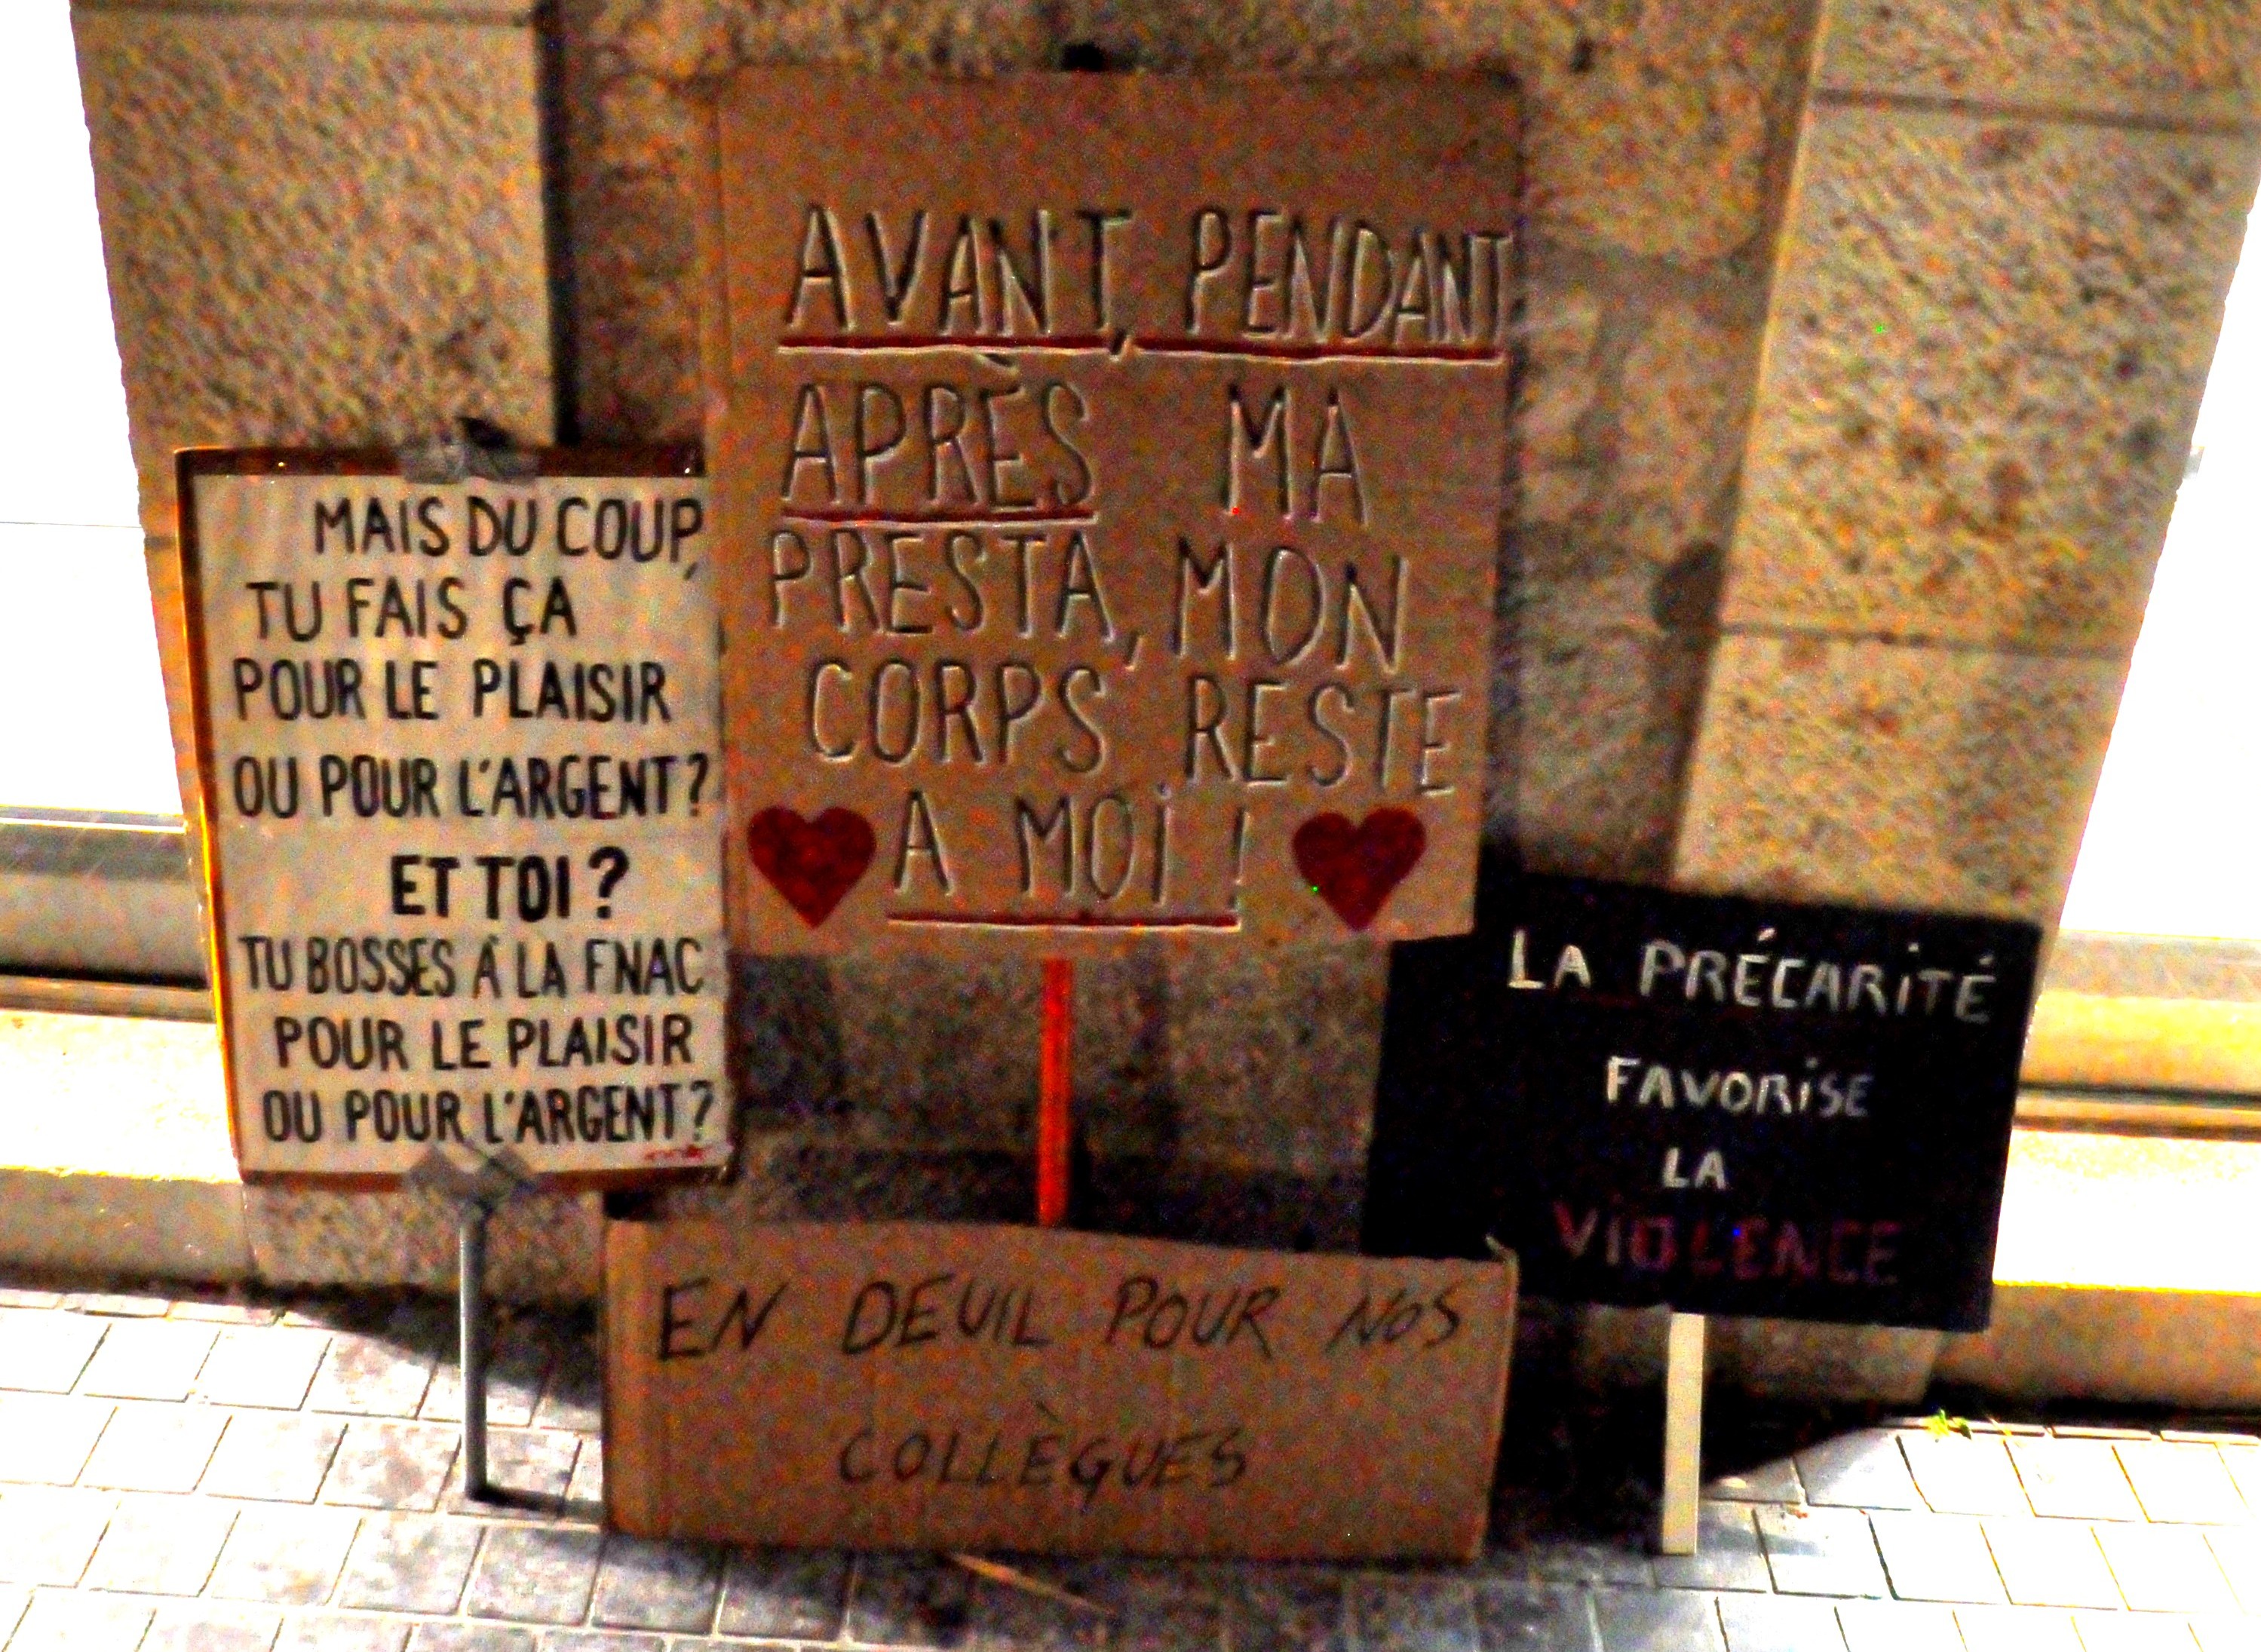 MAIS DU COUP,
TU FAIS ÇA
POUR LE PLAISIR
OU POUR L'ARGENT?
ET TOI?
TU BOSSES À LA FNAC
POUR LE PLAISIR
OU POUR L'ARGENT?
AVANT, PENDANT
APRÈS MA
PRESTA, MON
CORPS RESTE
A MOI !
LA PRÉCARITÉ
FAVORISE
LA
VIOLENCE
EN DEUIL POUR NOS
COLLÈGUES